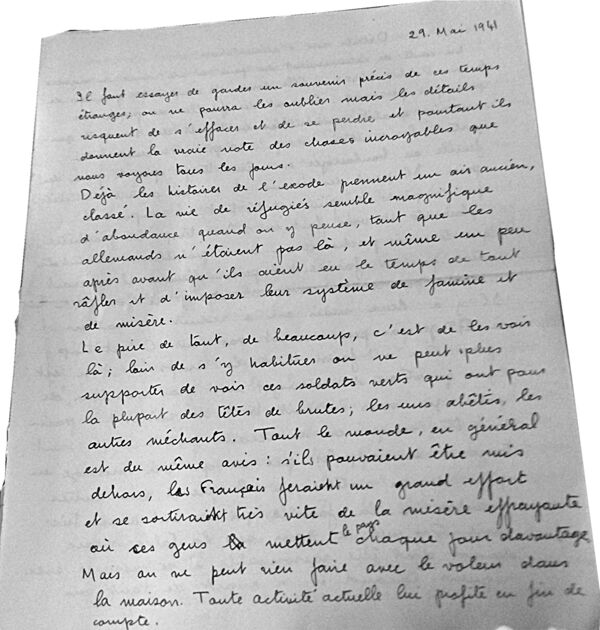 29. Mai 1941
Il faut essayer de garder un souvenir précis de ces temps
étranges; on ne pourra les oublier mais les détails
risquent de s'effacer et de se perdre et pourtant ils
donnent la vraie note des choses incroyables que
nous voyons tous les jours.
Déjà, les histoires de l'exode prennent un air ancien,
classé. La vie de réfugiés semble magnifique
d'abondance quand on y pense, tant que les
allemands n'étaient pas là, et même un peu
après avant qu'ils aient eu le temps de tout
râfler et d'imposer leur système de famine et
de misère.
Le pire de tout, de beaucoup, c'est de les voir
là; loin de s'y habituer on ne peut plus
supporter de voir ces soldats verts qui ont pour
la plupart des têtes de brutes; les uns abêtis, les
autres méchants. Tout le monde, en général
est du même avis: s'ils pouvaient être mis
dehors, les Français feraient un grand effort
et se sortiraient très vite de la misère effrayante
où ces gens mettent le pays chaque jour davantage
Mais on ne peut rien faire avec le voleur dans
la maison. Toute activité actuelle lui profite en fin de
compte.